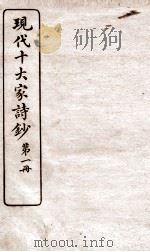 現代十大家詩鈔
第一冊
mtoou.info